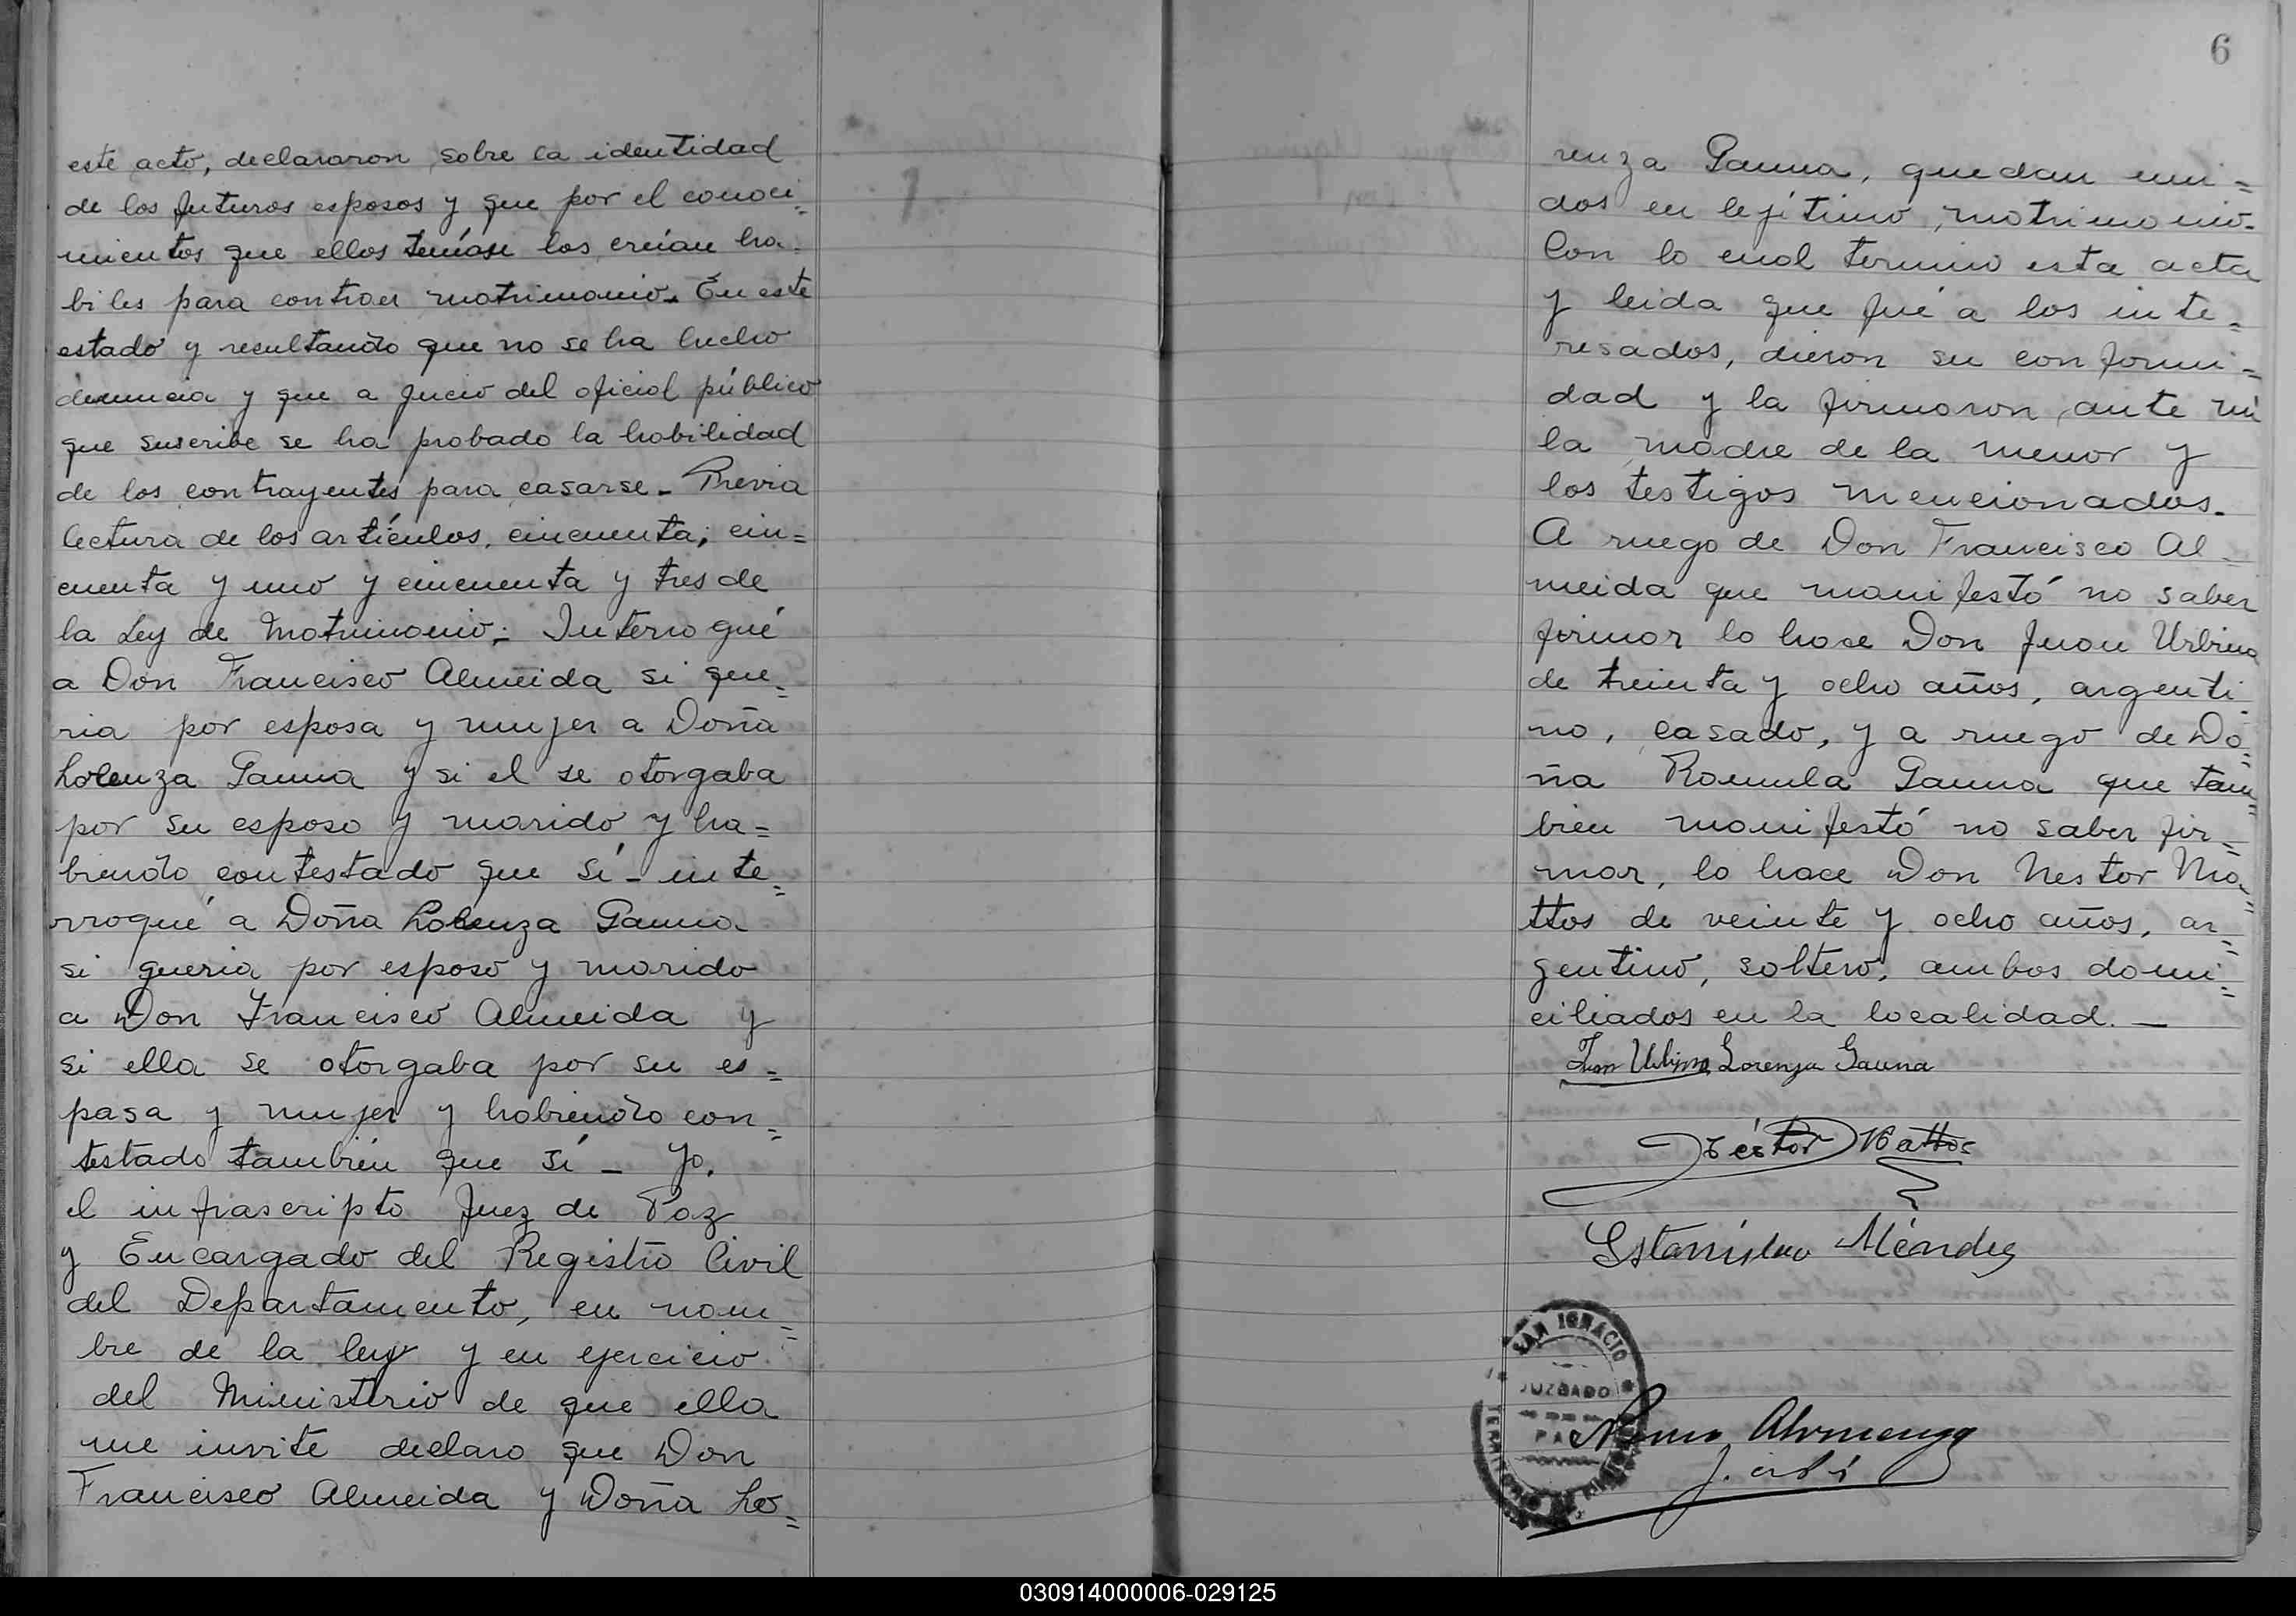 este acto, declararon sobre la identidad
de los futuros esposos y que por el conoci=
mientos que ellos tenían los creían ha=
biles para contraer matrimonio. En este
estado y resultando que no se ha hecho
denuncia y que a jucio del oficial público
que suscribe se ha probado la habilidad
de los contrayentes para casarse_ Previa
lectura de los artículos, cincuenta; cin=
cuenta y uno y cincuenta y tres de
la Ley de Matrimonio; Interrogué
a Don Francisco Almeida si que=
ria por esposa y mujer a Doña
Lorenza Gauna y si el se otorgaba
por su esposo y marido y ha=
biendo contestado que sí_ inte=
rrogué a Doña Lorenza Gauna
si queria por esposo y marido
a Don Francisco Almeida y
si ella se otorgaba por su es=
pasa y mujer y habiendo con=
testado también que sí_ Yo,
el infrascripto Juez de Paz
y Encargado del Registro Civil
del Departamento, en nom=
bre de la ley y en ejercicio
del Ministerio de que ella
me invite declaro que Don
Francisco Almeida y Doña Lo=
6
renza Gauna, quedan uni=
dos en lejítimo matrimonio.
Con lo cual termino esta acta
y leida que fué a los inte=
resados, dieron su conformi=
dad y la firmaron ante mi
la madre de la menor y
los testigos mencionados.
A ruego de Don Francisco Al=
meida que manifestó no saber
firmar lo hase Don Juan Urbina
de treinta y ocho años, argenti=
no, casado, y a ruego de Do=
ña Romula Gauna que tam=
bien manifestó no saber fir=
mar, lo hace Don Nestor Ma=
ttos de veinte y ocho años, ar=
gentino, soltero, ambos domi=
ciliados en la localidad._
Juan Urbina Lorenza Gauna
Néstor Mattos
Estanislao Méndez
SAN IGNACIO
JUZGADO
030914000006-029125